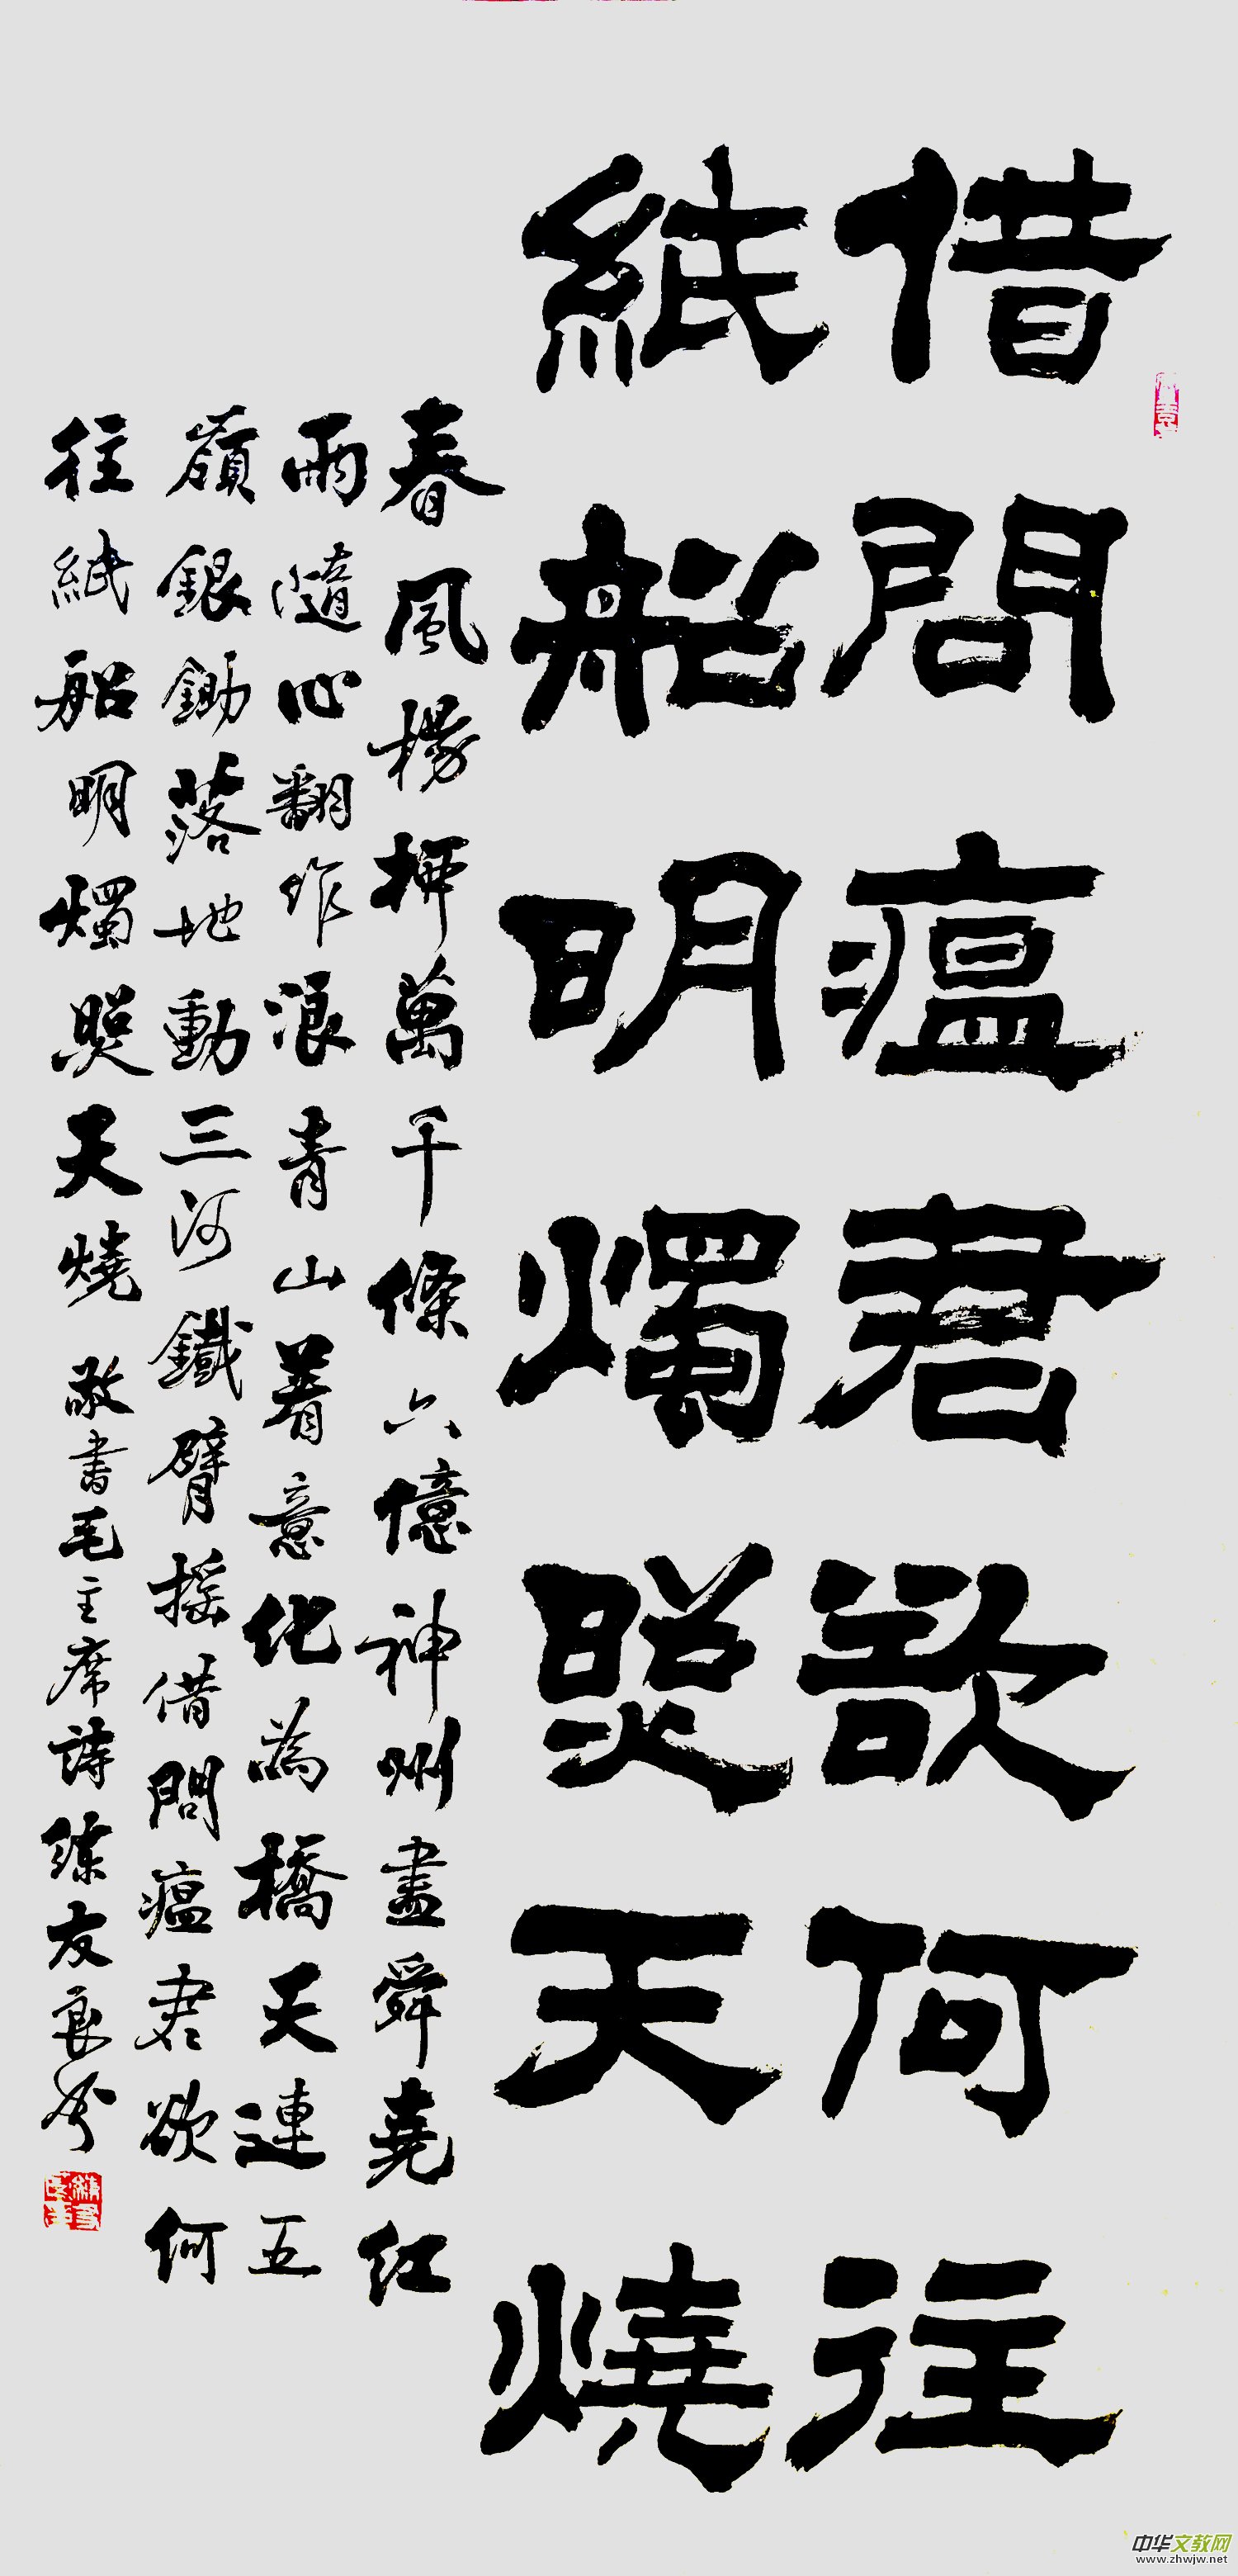 借問瘟君欲何往
紙船明燭照天燒
春風楊柳萬千條六億神州盡舜堯紅
雨隨心翻作浪青山着意化為橋天連五
嶺銀鋤落地動三河鐵臂搖借問瘟君欲何
往紙船明燭照天燒 敬書毛主席詩 練友良書
中华文教网
www.zhwjw.net